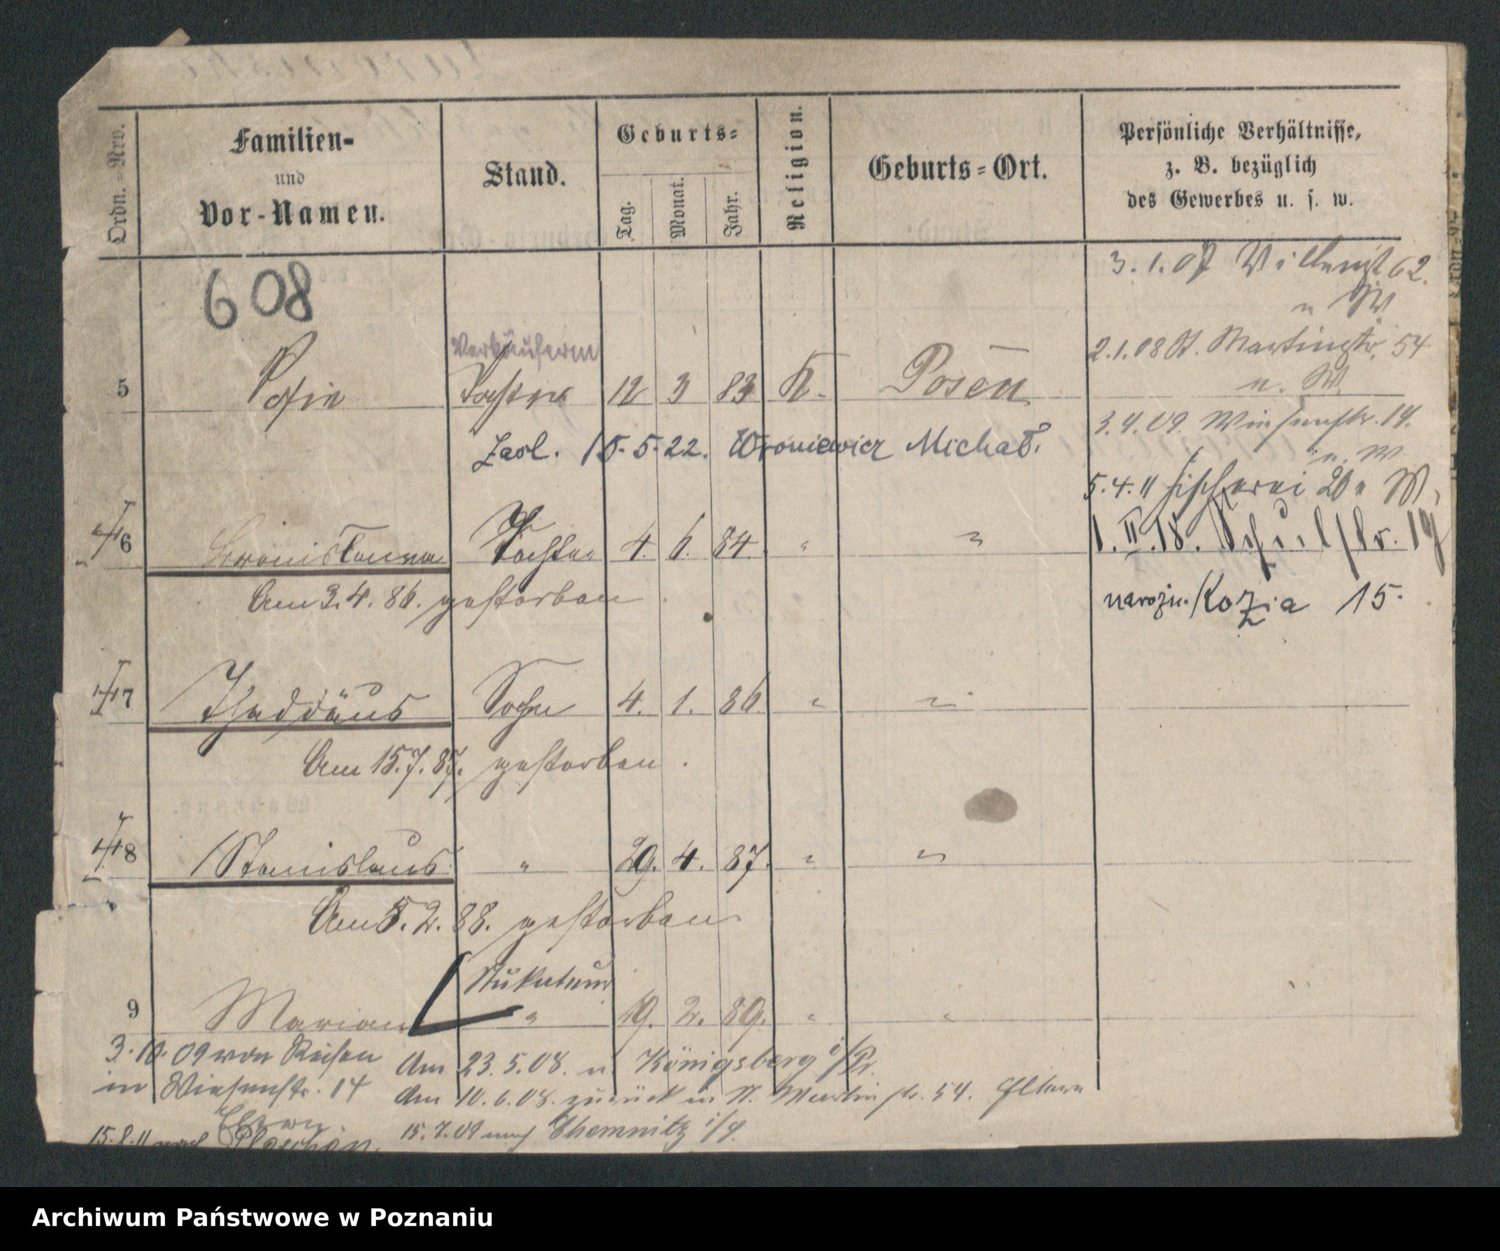 Ordn.-Nro.
Familien-
und
Vor-Namen.
Stand.
Geburts-
Tag.
Monat.
Jahr.
Religion.
Geburts-Ort.
Persönliche Verhältnisse,
z. B. bezüglich
des Gewerbes u. s. w.
608
3. 1. 07 62.
2.1.08 St. Martinstr. 54
u. W.
Verkäuferin
5 Sofie Tochter 12 3 83 K. Posen
3.4.09. Wiesenstr. 14.
u. W
Zasl. 15.5.22. Wroniewicz Michał.
5.4.11 Fischerei 20 u W.
†6 Bronislawa Tochter 4. 6. 84 " "
1. II. 18. Schulstr. 19
Am 3. 4. 86. gestorben.
narożn. Kozia 15.
†7 Thaddäus Sohn 4. 1. 86. " "
Am 15.7.87. gestorben.
†8 Stanislaus " 29. 4. 87. " "
Am 5. 2. 88. gestorben
Stukateur
9 Marian " 19. 2. 89. " "
3.10.09 von Reisen
in Wiesenstr. 14
Am 23.5.08. n Königsberg i/Pr.
Am 10.6.08. zurück in St. Martinstr. 54. Eltern
Eltern
15.7.09 nach Chemnitz i/S.
15.8.11 nach Pleschen
Archiwum Państwowe w Poznaniu